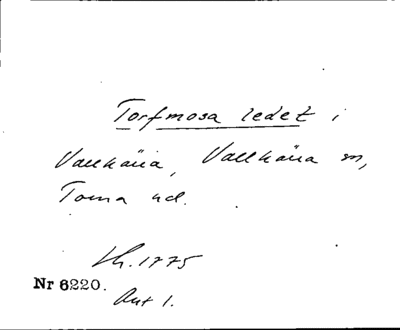 Torfmosa ledet i
Vallkärra, Vallkärra sn,
Torna hd.
Lh. 1775
Nr 6220.
Akt 1.